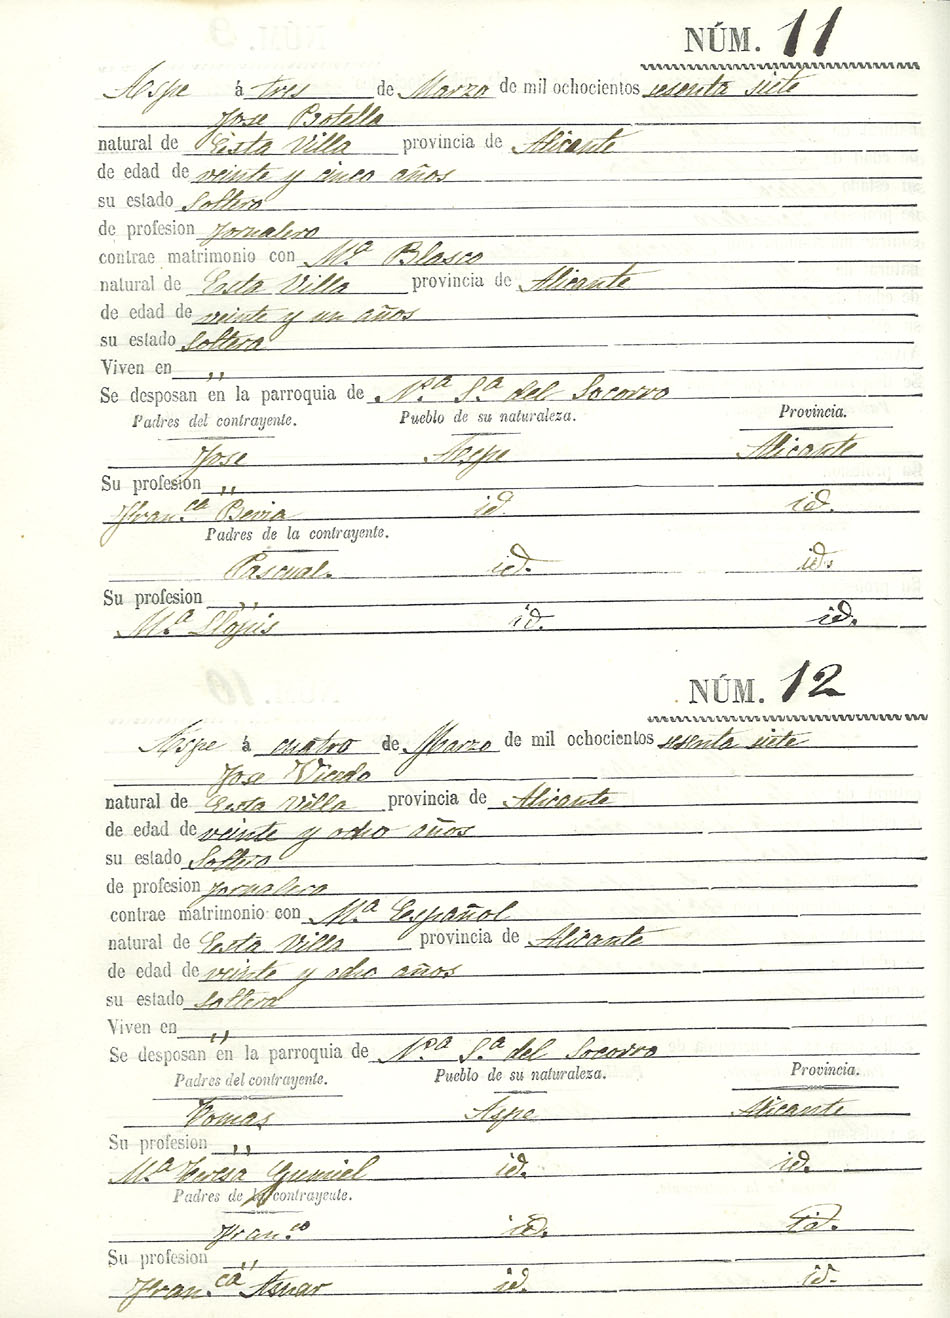 NÚM. 11
Aspe á tres de Marzo de mil ochocientos sesenta siete
Jose Botella
natural de Esta Villa provincia de Alicante
de edad de veinte y cinco años
su estado Soltero
de profesion Jornalero
contrae matrimonio con Mª Blasco
natural de Esta Villa provincia de Alicante
de edad de veinte y un años
su estado Soltera
Viven en ,,
Se desposan en la parroquia de Nª Sª del Socorro
Padres del contrayente. Pueblo de su naturaleza. Provincia.
Jose Aspe Alicante
Su profesion ,,
Fran.ca Bevia id. id.
Padres de la contrayente.
Pascual. id. id.
Su profesion ,,
M.a Llopis id. id.
NÚM. 12
Aspe á cuatro de Marzo de mil ochocientos sesenta siete
Jose Vicedo
natural de Esta Villa provincia de Alicante
de edad de veinte y ocho años
su estado Soltero
de profesion Jornalero
contrae matrimonio con Mª Español
natural de Esta Villa provincia de Alicante
de edad de veinte y ocho años
su estado Soltera
Viven en ,,
Se desposan en la parroquia de Nª Sª del Socorro
Padres del contrayente. Pueblo de su naturaleza. Provincia.
Tomas Aspe Alicante
Su profesion ,,
M.a Teresa Gumiel id. id.
Padres de la contrayente.
Fran.co id. id.
Su profesion ,,
Fran.ca Asnar id. id.